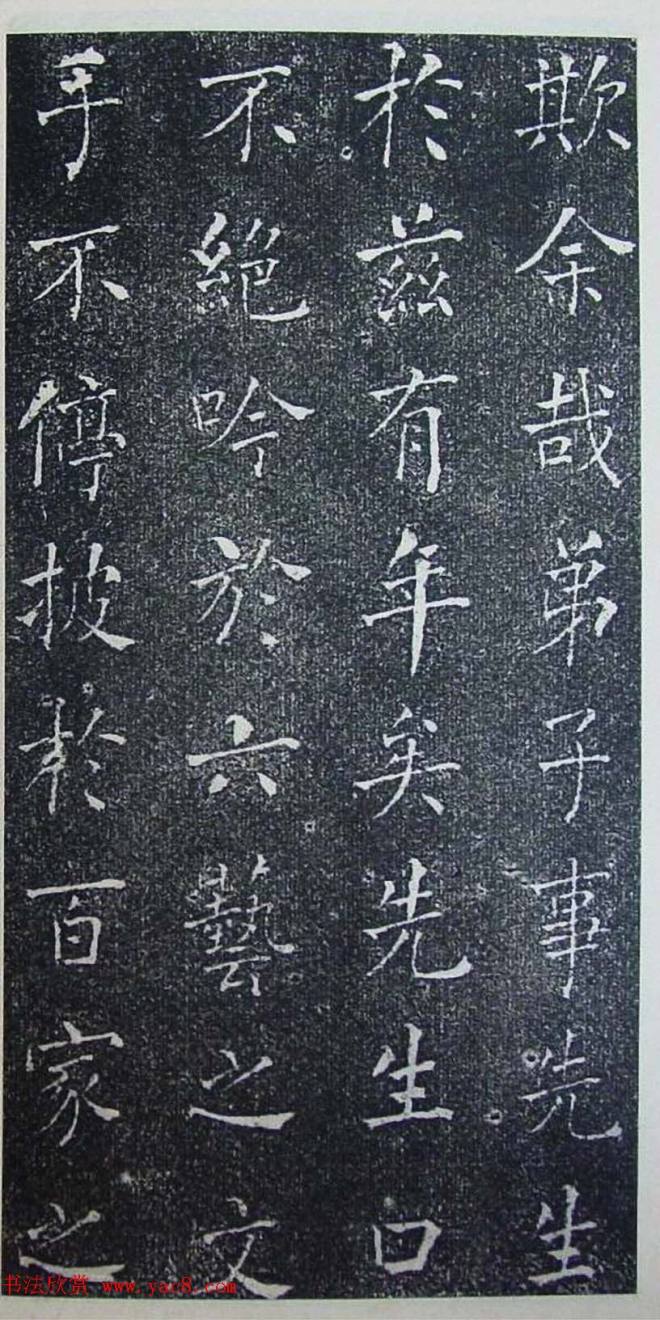 欺余哉弟子事先生
於兹有年矣先生口
不絕吟於六藝之文
手不停披於百家之
书法欣赏 www.yac8.com